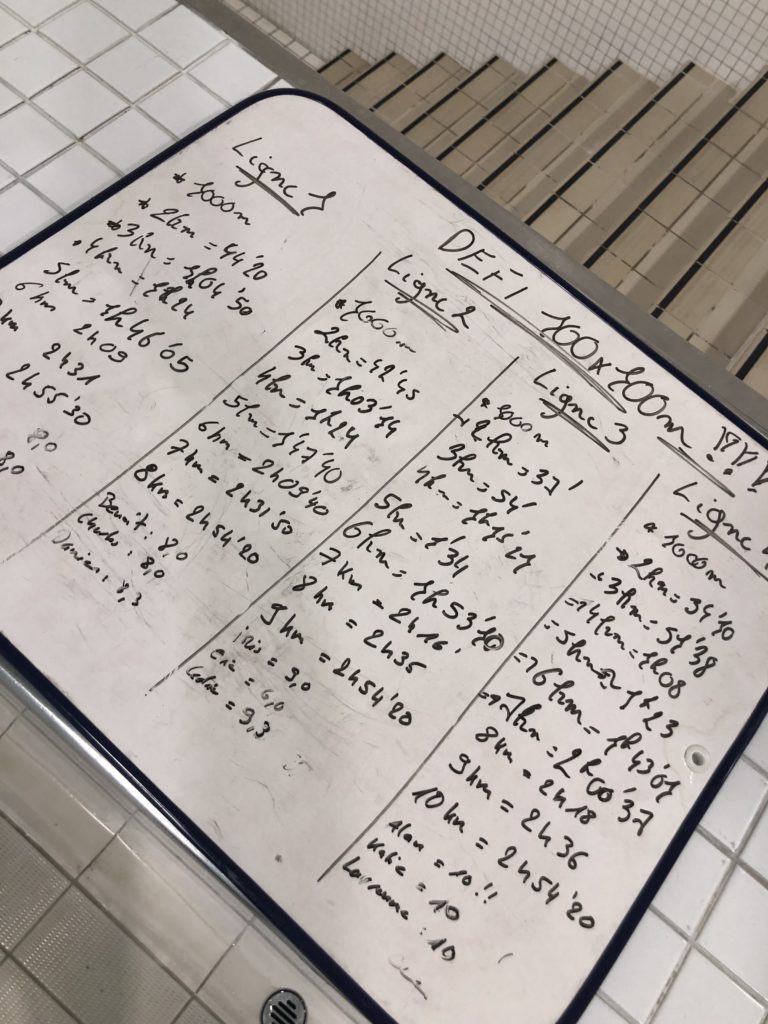 DEFI 100x100m !!!!
Ligne 1
* 1000m
* 2km = 44'20
* 3km = 1h04'50
* 4km = 1h24
5km = 1h46'05
6km 2h09
km 2h31
2h55'30
8,0
8,0
Ligne 2
* 1000m
2km = 42'45
3km = 1h03'14
4km = 1h24
5km = 1'47'40
6km = 2h09'40
7km = 2h31'50
8km = 2h54'20
Benoit : 8,0
: 8,0
Damien : 8,3
Ligne 3
* 1000m
2km = 37'
3km = 54'
4km = 1h15'21
5km = 1'34
6km = 1h53'10
7km = 2h16'
8km = 2h35
9km = 2h54'20
iris = 9,0
eric = 6,0
= 9,3
Ligne 4
* 1000m
2km = 34'10
3km = 51'38
4km = 1h08
5km = 1h23
6km = 1h43'01
7km = 2h00'37
8km = 2h18
9km = 2h36
10km = 2h54'20
Alan = 10!!
Katie = 10
: 10